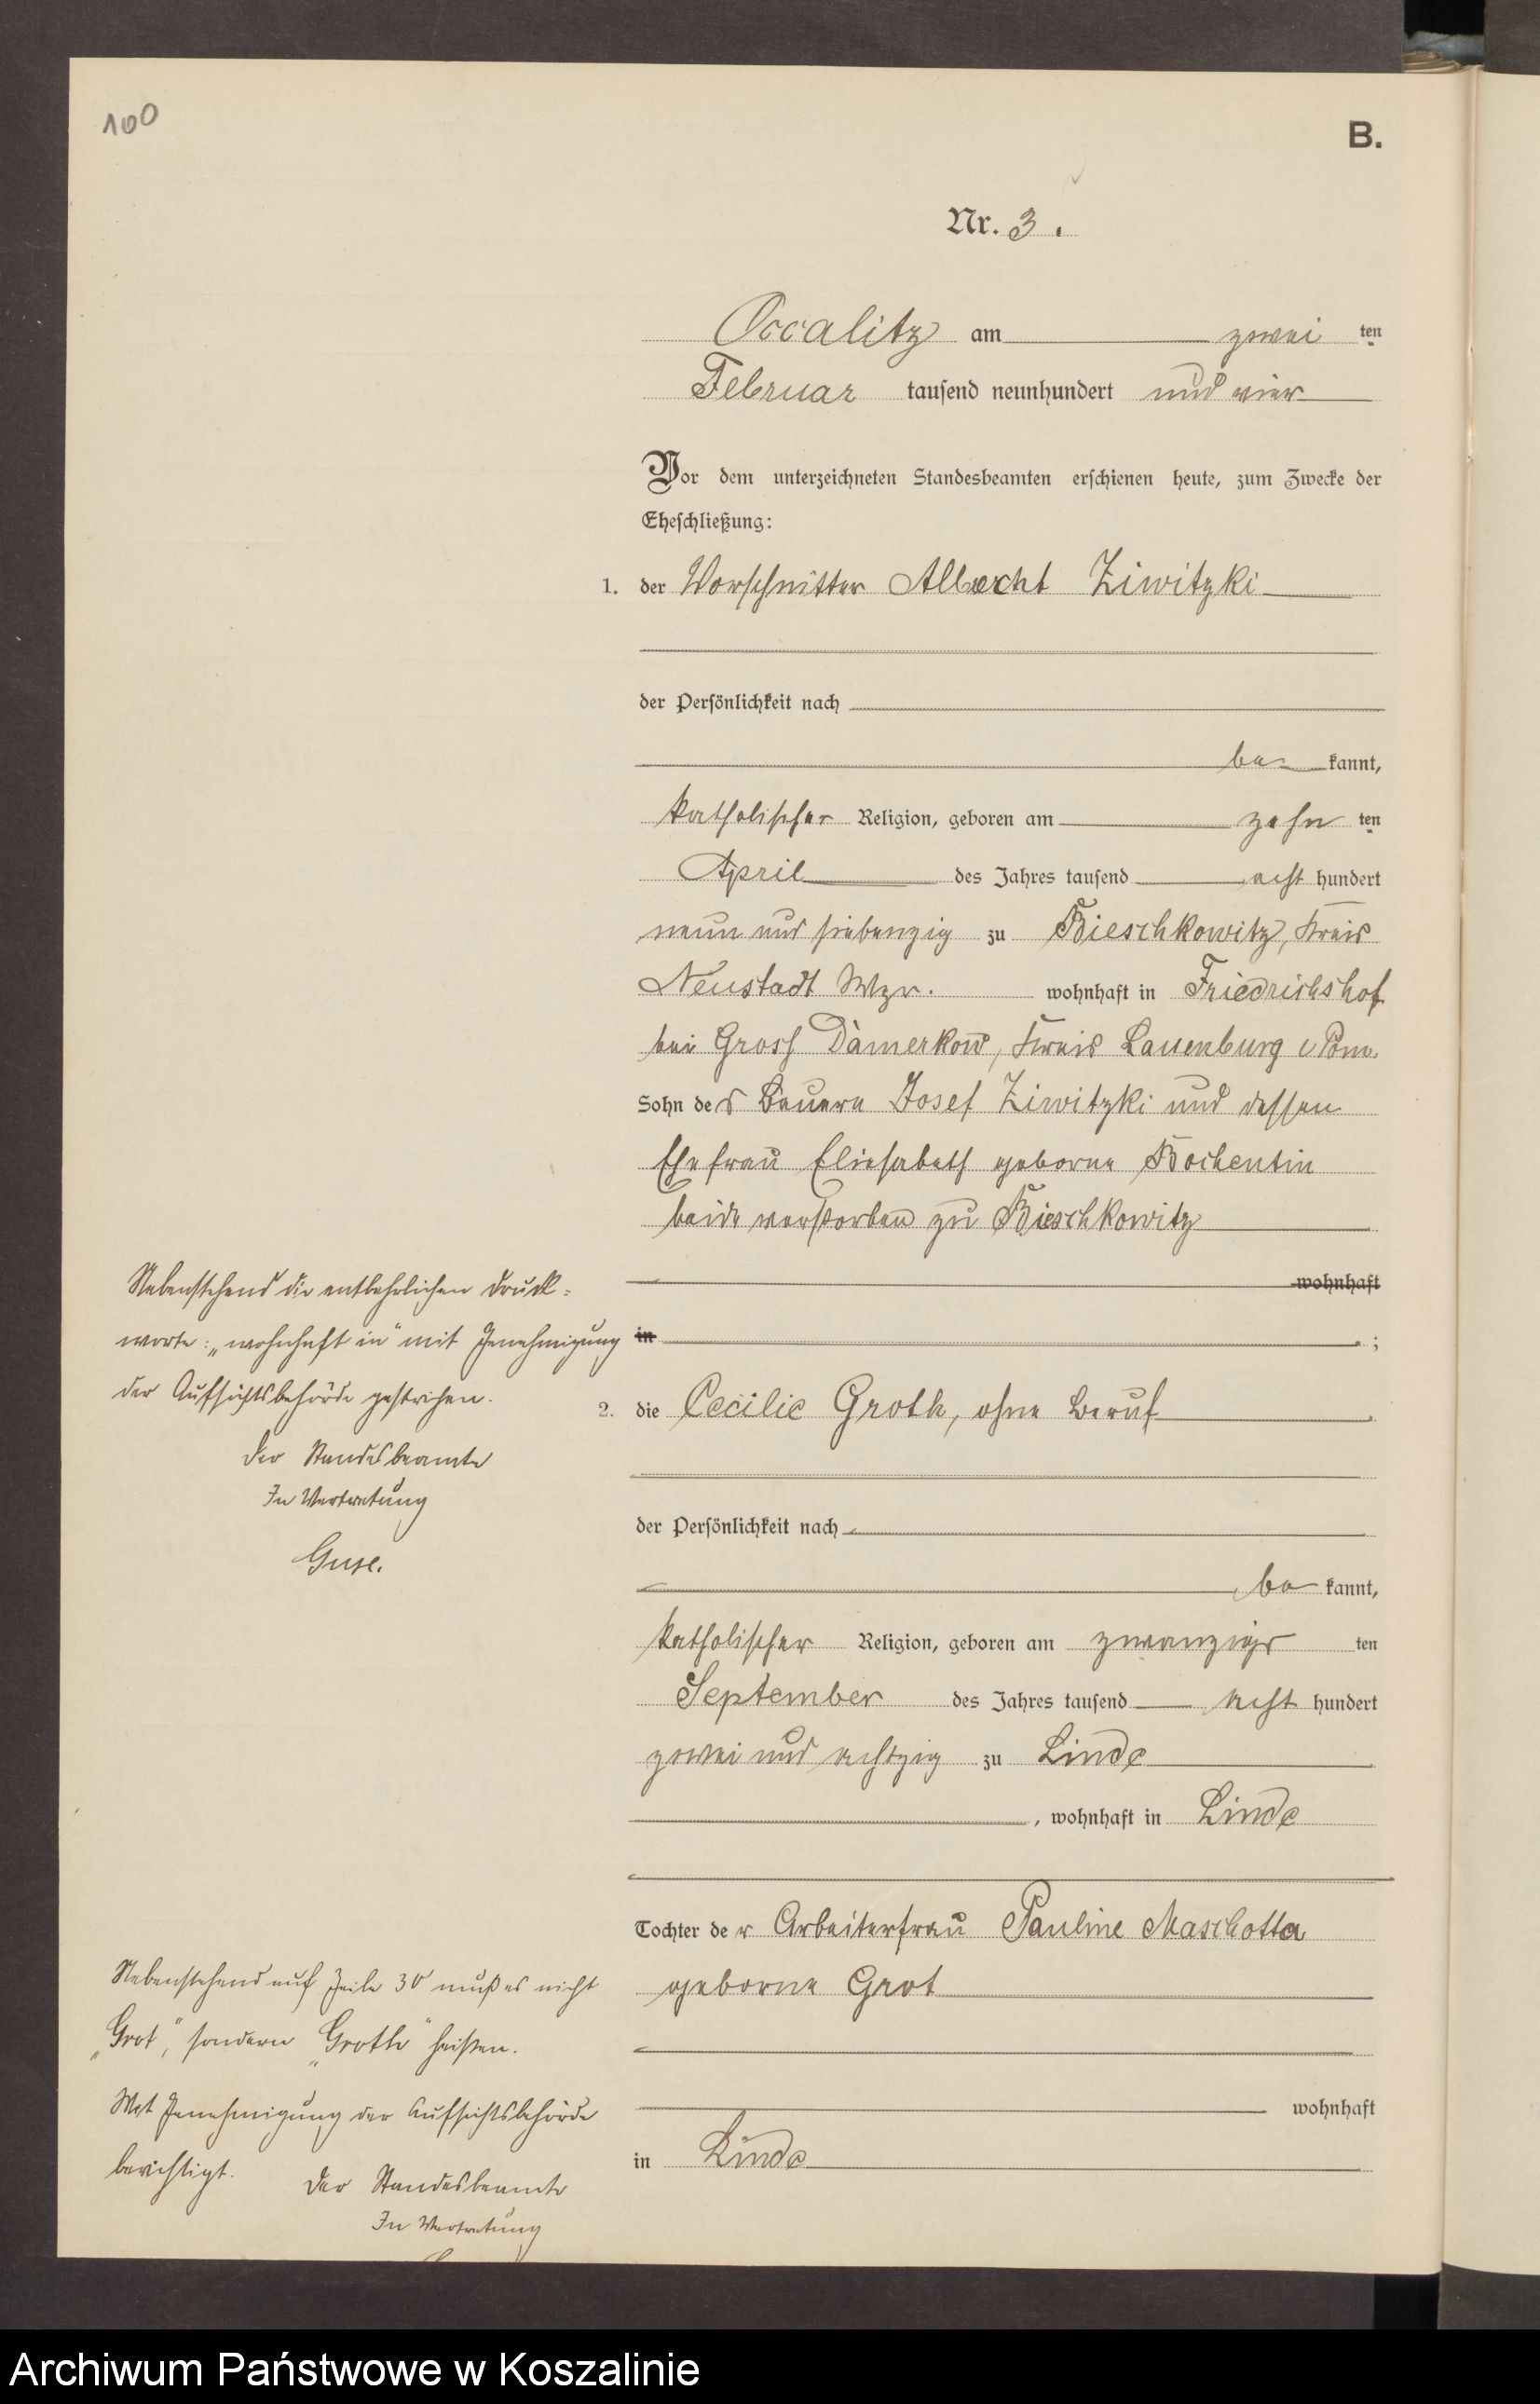 100
B.
Nr. 3.
Occalitz am zwei ten
Februar tausend neunhundert und vier
Vor dem unterzeichneten Standesbeamten erschienen heute, zum Zwecke der
Eheschließung:
1. der Vorschnitter Albrecht Ziwitzki
der Persönlichkeit nach
be- kannt,
katholischer Religion, geboren am zehn ten
April des Jahres tausend acht hundert
neun und siebenzig zu Bieschkowitz, Kreis
Neustadt Wpr. wohnhaft in Friedrichshof
bei Gross Damerkow, Kreis Lauenburg i Pom.
Sohn des Bauern Josef Ziwitzki und dessen
Ehefrau Eliesabeth geborne Bochentin
beide verstorben zu Bieschkowitz
wohnhaft
in ;
Nebenstehend die entbehrlichen Druck=
worte: „wohnhaft in“ mit Genehmigung
der Aufsichtsbehörde gestrichen.
Der Standesbeamte
In Vertretung
Guse.
2. die Cecilie Groth, ohne Beruf
der Persönlichkeit nach
be kannt,
katholischer Religion, geboren am zwanzigs ten
September des Jahres tausend acht hundert
zwei und achtzig zu Linde
, wohnhaft in Linde
Tochter der Arbeiterfrau Pauline Maschotta
geborne Grot
wohnhaft
in Linde
Nebenstehend auf Zeile 30 muß es nicht
„Grot“, sondern „Groth“ heißen.
Mit Genehmigung der Aufsichtsbehörde
berichtigt. Der Standesbeamte
In Vertretung
Archiwum Państwowe w Koszalinie